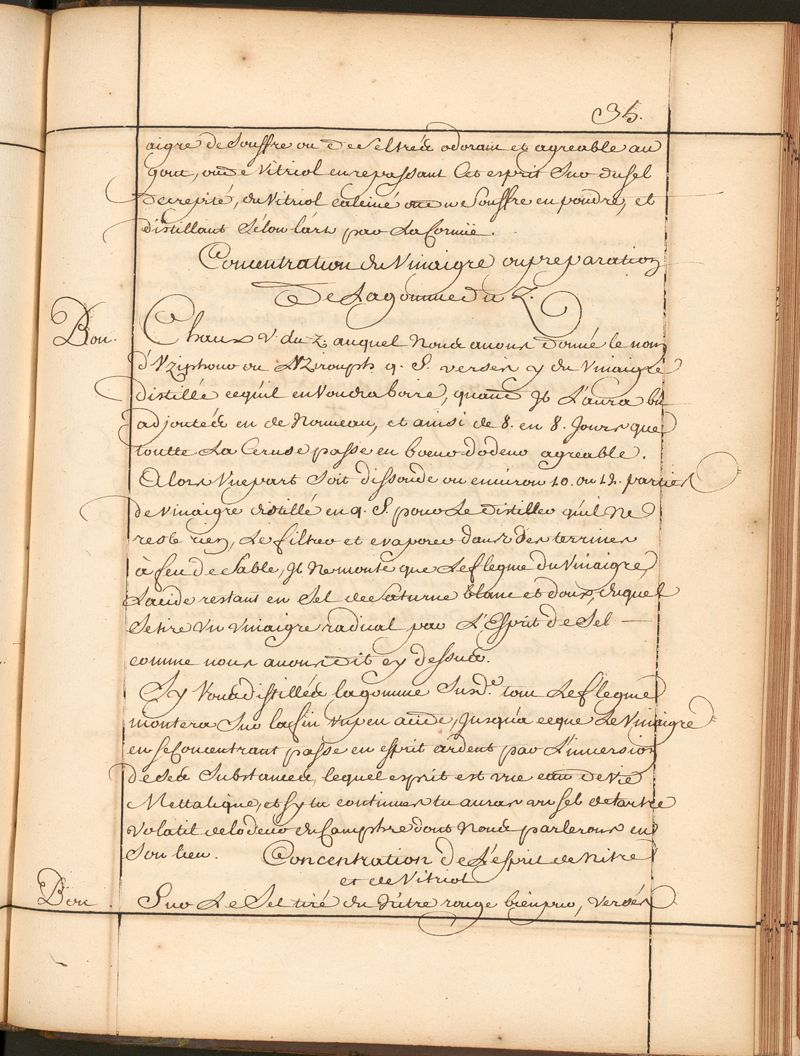 35.
aigre de Souffre ou de Seltrée odorant et agreable au
gout, ou de Vitriol en repassant Cet esprit Sur du sel
decrepité, du Vitriol calciné ou le Souffre en poudre, et
distillant Sélon lárt par La Cornüe.
Concentration du Vinaigre ou preparation
de La gomme du
Bon.
Chaux V. du auquel Nous avons donné le nom
d'Uziphono ou q. S. versés y du Vinaigre
distillé ce qúil en Voudra boire, quand Jl L'aura bu
adjoutés en de Nouveau, et ainsi de 8. en 8. Jours que
toutte La Ceruse passe en d'odeur agreable.
Alors Une part Soit dissoude ou environ 10. ou 12. parties
de Vinaigre distillé en q. S. pour Le distiller qúil Ne
reste rien, Le filtrer et evaporer dans des terrines
à feu de Sable, Jl Ne monte que Le flegme du Vinaigre,
Lacide restant en Sel de Saturne blanc et doux, duquel
Se tire Un Vinaigre radical par L'Esprit de Sel
comme nous avons dit cy dessus.
Sy Vous distillés la gomme Susd.e tout Le flegme
montera Sur la fin un peu acide, Jusqúa ce que Le Vinaigre
en Se Concentrant passe en esprit árdent par L'inversion
de ses Substances, lequel esprit est une eau de Vie
Mettalique, et Sy tu continues tu auras un Sel de tartre
Volatil de lodeur du Camphre dont Nous parlerons en
Son lieu. Concentration de L'esprit de Nitre
et de Vitriol
Bon
Sur Le Sel tiré du Nitre rouge bien pur, versés